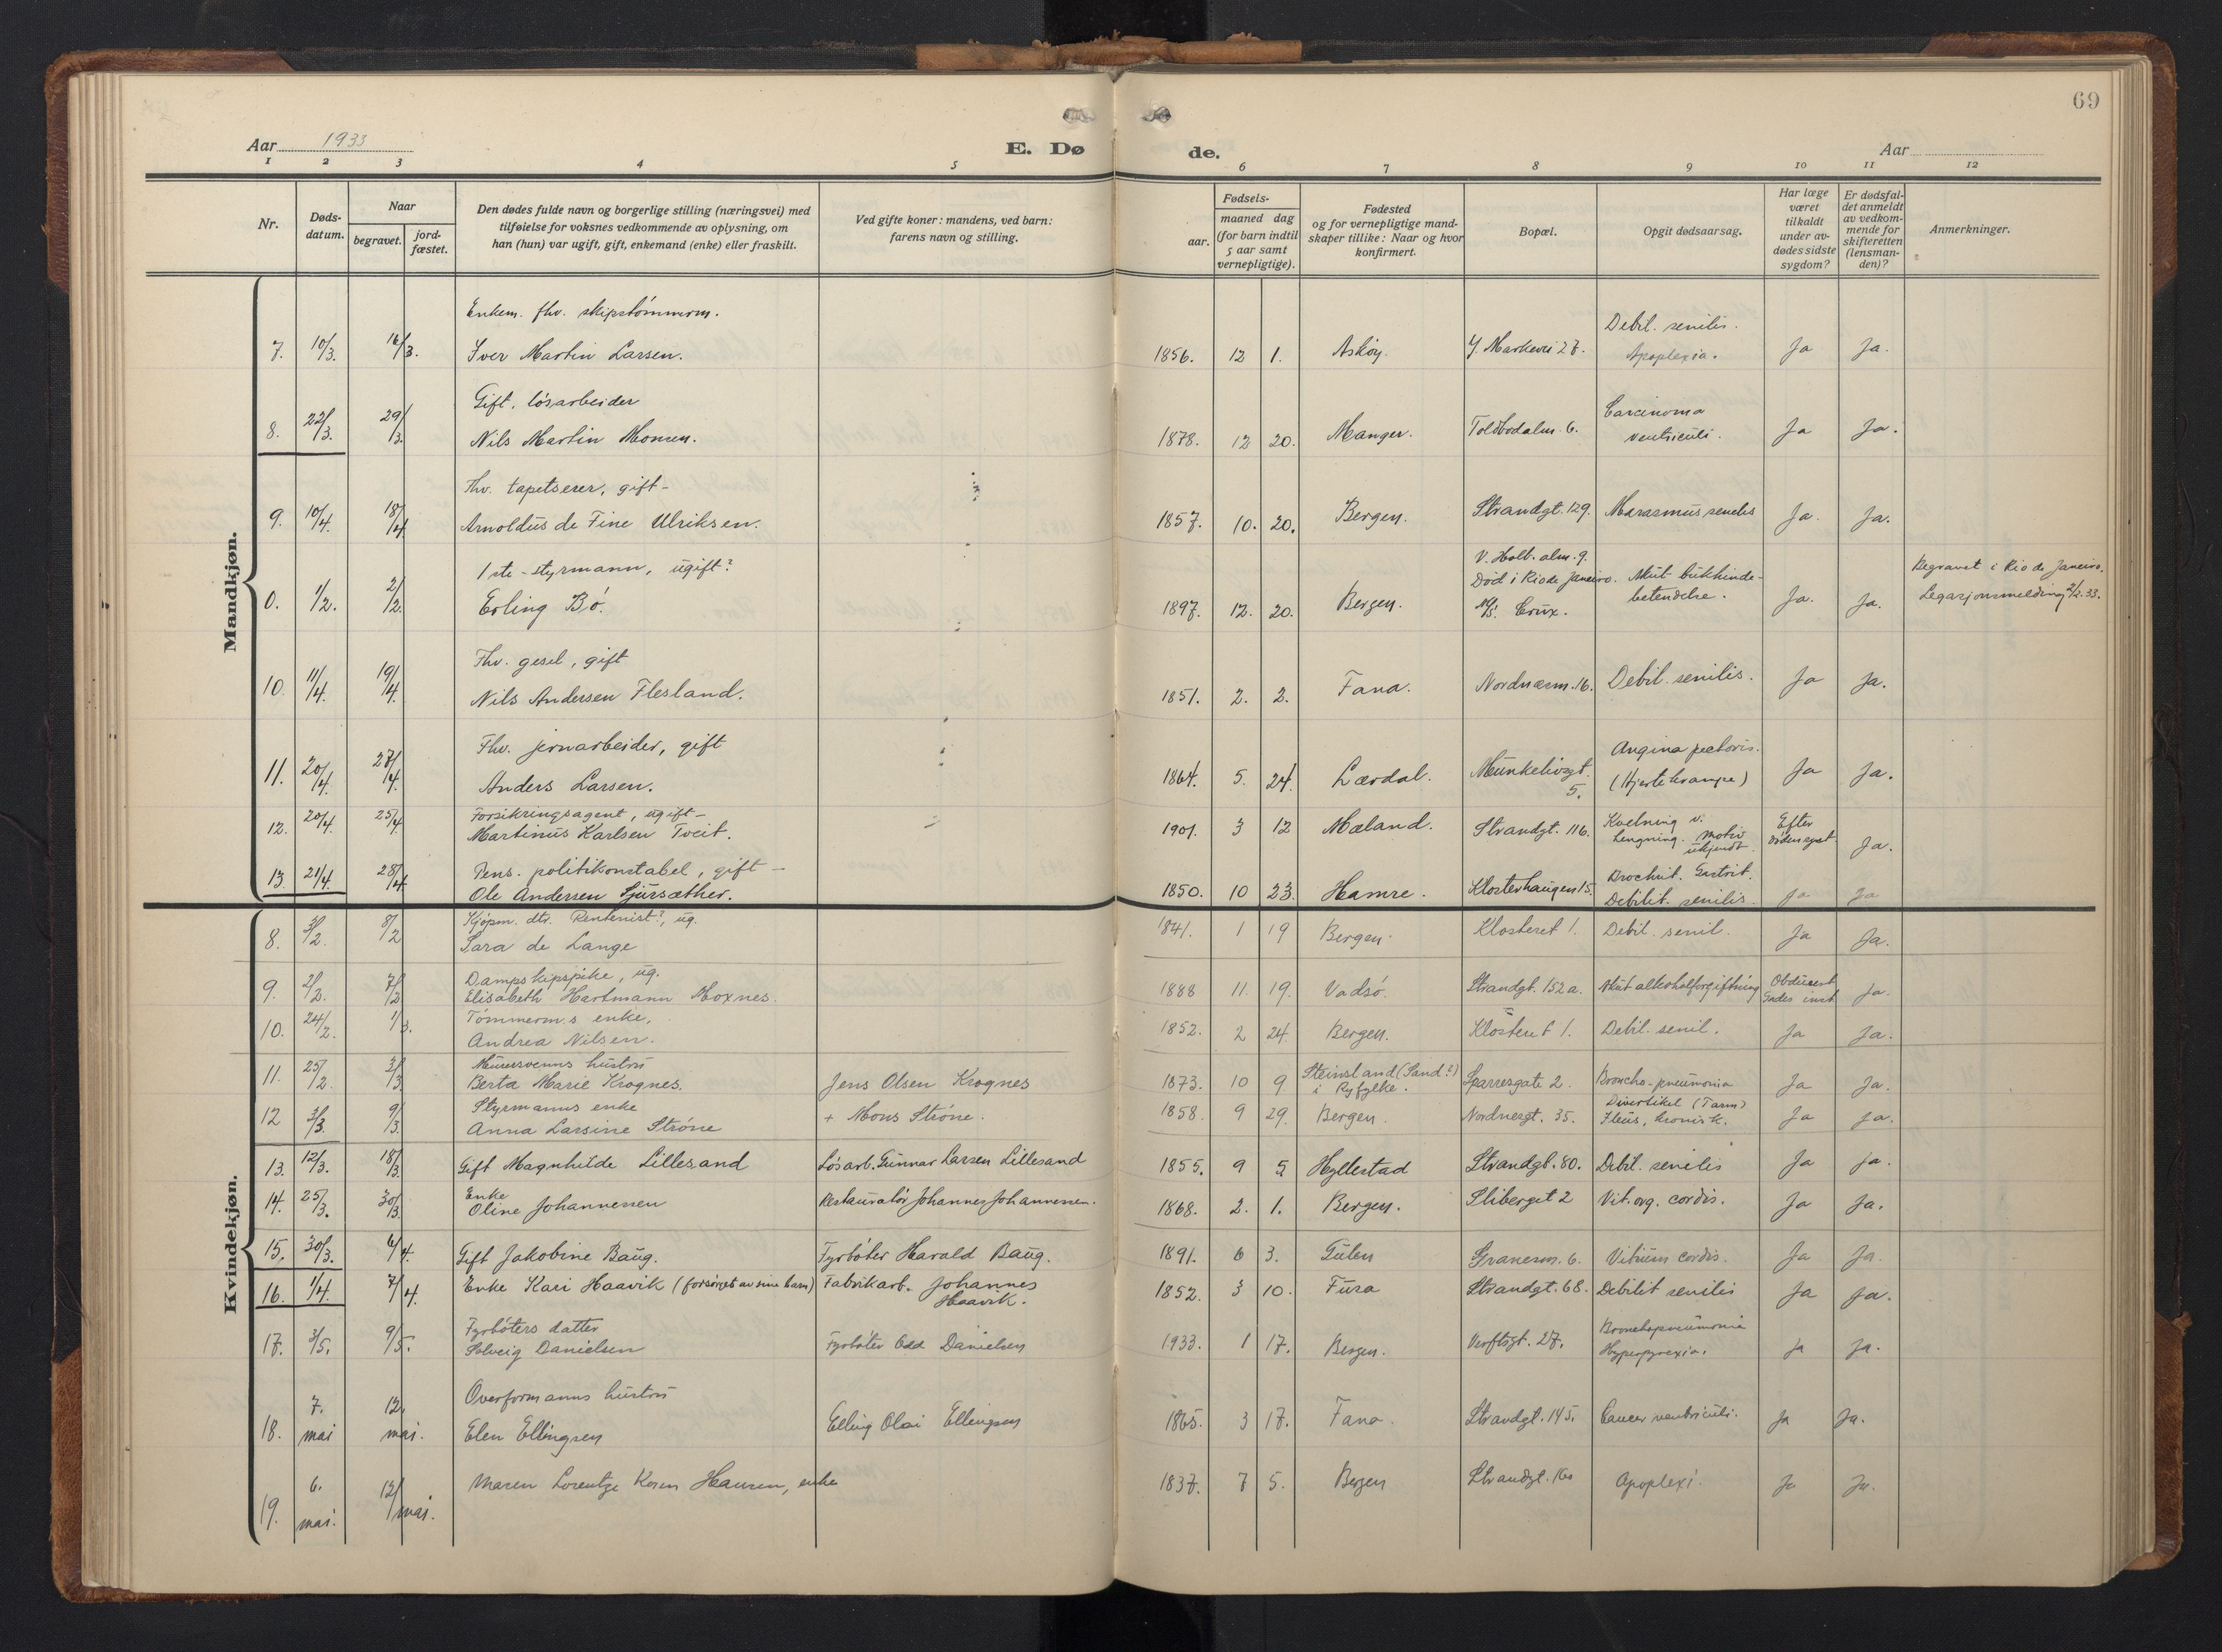 69
Aar 1933
E. Dø
de.
Aar
1 2 3 4 5 6 7 8 9 10 11 12
Nr.
Døds-
datum.
Naar
begravet.
jord-
fæstet.
Den dødes fulde navn og borgerlige stilling (næringsvei) med
tilføielse for voksnes vedkommende av oplysning, om
han (hun) var ugift, gift, enkemand (enke) eller fraskilt.
Ved gifte koner: mandens, ved barn:
farens navn og stilling.
Fødsels-
aar.
maaned dag
(for barn indtil
5 aar samt
vernepligtige).
Fødested
og for vernepligtige mand-
skaper tillike: Naar og hvor
konfirmert.
Bopæl.
Opgit dødsaarsag.
Har læge
været
tilkaldt
under av-
dødes sidste
sygdom?
Er dødsfal-
det anmeldt
av vedkom-
mende for
skifteretten
(lensman-
den)?
Anmerkninger.
Mandkjøn.
Enkem. fhv. skipstømmerm.
Debil. senilis.
7. 10/3. 16/3. Iver Martin Larsen. 1856. 12 1. Askøy. Y. Markevei 27. Apoplexia. Ja Ja.
Gift, løsarbeider
Carcinoma
8. 22/3. 29/3. Nils Martin Monsen. 1878. 12 20. Manger. Toldbodalm. 6. ventriculi. Ja Ja.
Fhv. tapetserer, gift -
9. 10/4. 18/4 Arnoldus de Fine Ulriksen. 1857. 10. 20. Bergen. Strandgt. 129. Marasmus senilis Ja. Ja.
1ste-styrmann, ugift?
V. Holb. alm. 9.
Død i Rio de Janeiro. Akut bukhinde-
Begravet i Rio de Janeiro.
0. 1/2. 2/2. Erling Bø. 1897. 12. 20. Bergen. M/S. Crux. betendelse. Ja. Ja. Legasjonsmelding 2/2.33.
Fhv. gesel, gift
10. 11/4. 19/4. Nils Andersen Flesland. 1851. 2. 2. Fana. Nordnæsm. 16. Debil. senilis. Ja Ja.
Fhv. jernarbeider, gift
Angina pectoris.
11. 20/4. 27/4. Anders Larsen. 1864. 5. 24. Lærdal. Munkelivsgt. 5. (Hjertekrampe) Ja Ja.
Forsikringsagent, ugift -
Kvelning v.
Efter
12. 20/4. 25/4. Martinus Karlsen Tveit. 1901. 3 12 Mæland. Strandgt. 116. hengning. Motiv ukjendt. Ja.
Pens. politikonstabel, gift -
13. 21/4. 28/4. Ole Andersen Sjursæther. 1850. 10 23. Hamre. Klosterhaugen 15. Debilit. senilis. Ja Ja
Kvindekjøn.
Kjøpm. dtr. Rentenist?, ug.
8. 3/2. 8/2 Sara de Lange 1841. 1 19 Bergen. Klosteret 1. Debil. senil. Ja Ja.
Dampskipspike, ug.
Obducert
9. 2/2. 7/2 Elisabeth Hartmann Moxnes. 1888 11. 19. Vadsø. Strandgt. 152a. Akut alkoholforgiftning Gades inst. Ja.
Tømmerm.s enke,
10. 24/2. 1/3. Andrea Nilsen. 1852. 2 24. Bergen. Klosteret 1. Debil. senil. Ja Ja.
Murersvenns hustru
11. 25/2. 2/3 Berta Marie Krognes. Jens Olsen Krognes 1873. 10 9 Steinsland (Sand?) i Ryfylke. Sparresgate 2. Broncho-pneumonia Ja Ja.
Styrmanns enke
Divertikel (Tarm)
12 3/3. 9/3. Anna Larsine Strøne + Mons Strøne. 1858. 9 29. Bergen Nordnesgt. 35. Ileus, kronisk. Ja Ja.
13. 12/3. 18/3. Gift Magnhilde Lillesand Løsarb. Gunnar Larsen Lillesand 1855. 9 5 Hyllestad Strandgt. 80. Debil. senilis Ja Ja.
Enke
14. 25/3. 30/3. Oline Johannessen Restauratør Johannes Johannessen. 1868. 2. 1. Bergen. Sliberget 2 Vit. org. cordis. Ja Ja.
15. 30/3. 6/4. Gift Jakobine Baug. Fyrbøter Harald Baug. 1891. 6 3. Gulen Granesm. 6. Vitium cordis. Ja Ja.
16. 1/4. 7/4. Enke Kari Haavik (forsørget av sine barn) Fabrikarb. Johannes Haavik. 1852. 3 10. Fusa Strandgt. 68. Debilit senilis Ja Ja.
Fyrbøters datter
Bronchopneumonia
17. 3/5. 9/5. Solveig Danielsen Fyrbøter Odd Danielsen 1933. 1 17. Bergen. Verftsgt. 27. Hyperpyrexia. Ja Ja.
Overformanns hustru
18. 7. mai 12. mai. Elen Ellingsen Elling Olai Ellingsen 1865. 3 17. Fana. Strandgt. 145. Cancer ventriculi. Ja Ja.
19. 6. mai. 12/mai. Maren Lorentze Hansen, enke 1837. 7 5. Bergen Strandgt. Apoplexi. Ja Ja.